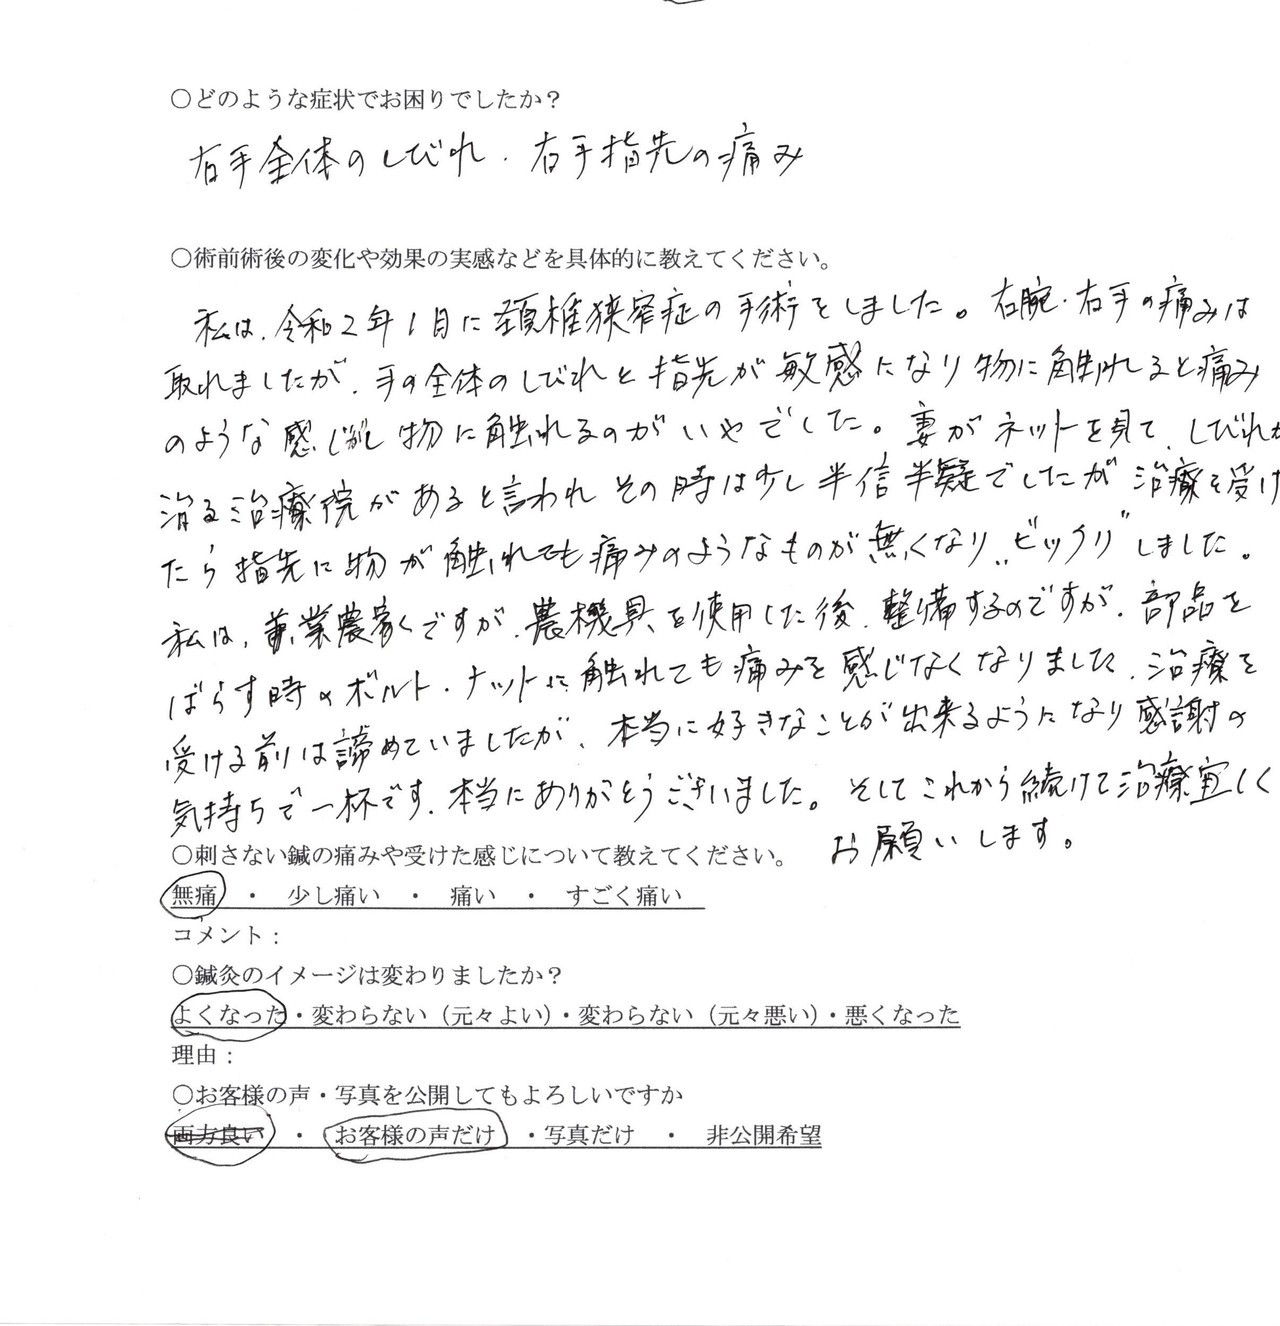 ○どのような症状でお困りでしたか？
右手全体のしびれ．右手指先の痛み
○術前術後の変化や効果の実感などを具体的に教えてください。
私は、令和2年1月に頚椎狭窄症の手術をしました。右腕・右手の痛みは
取れましたが、手の全体のしびれと指先が敏感になり物に触れると痛み
のような感じがし物に触れるのがいやでした。妻がネットを見て、しびれが
治る治療院があると言われその時は少し半信半疑でしたが治療を受け
たら指先に物が触れても痛みのようなものが無くなり〝ビックリ〟しました。
私は、兼業農家ですが、農機具を使用した後、整備するのですが、部品を
ばらす時のボルト・ナットに触れても痛みを感じなくなりました、治療を
受ける前は諦めていましたが、本当に好きなことが出来るようになり感謝の
気持ちで一杯です、本当にありがとうございました。そしてこれから続けて治療宜しく
お願いします。
○刺さない鍼の痛みや受けた感じについて教えてください。
無痛 ・ 少し痛い ・ 痛い ・ すごく痛い
コメント：
○鍼灸のイメージは変わりましたか？
よくなった・変わらない（元々よい）・変わらない（元々悪い）・悪くなった
理由：
○お客様の声・写真を公開してもよろしいですか
両方良い ・ お客様の声だけ ・写真だけ ・ 非公開希望